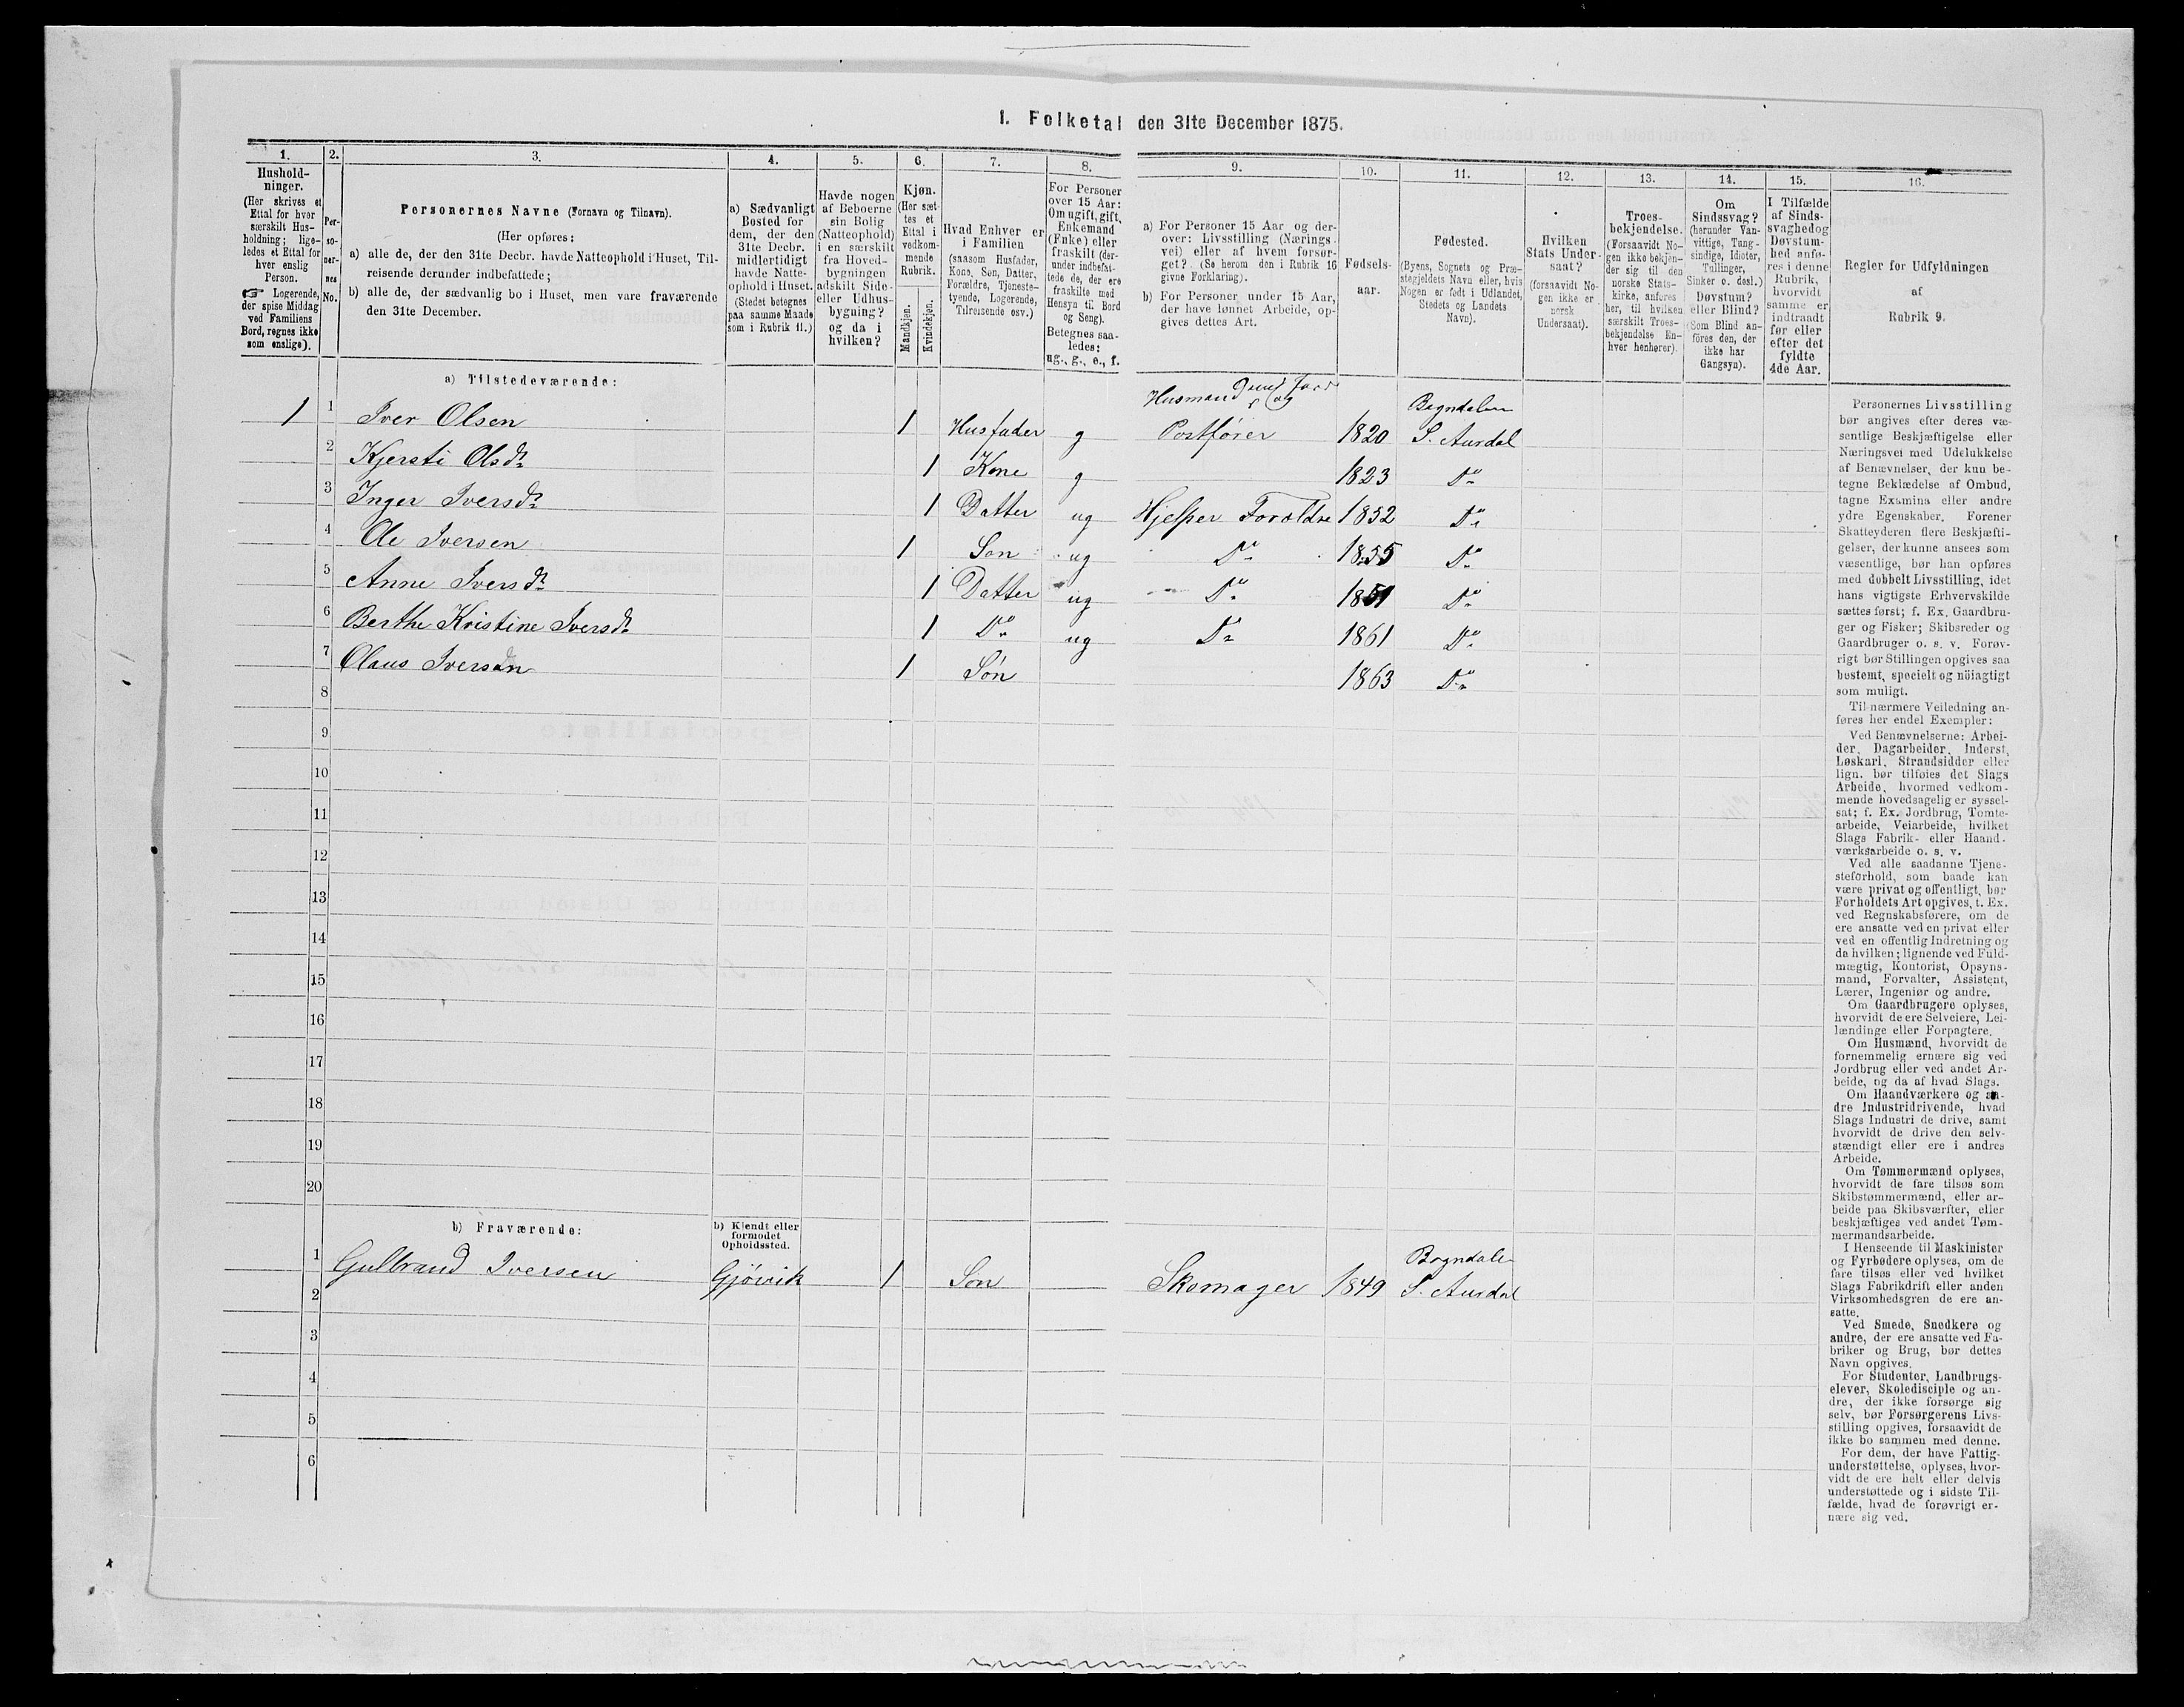 1. Folketal den 31te December 1875.
1.
Hushold-
ninger.
(Her skrives et
Ettal for hver
særskilt Hus-
holdning; lige-
ledes et Ettal for
hver enslig
Person.
☞ Logerende,
der spise Middag
ved Familiens
Bord, regnes ikke
som enslige).
2.
Per-
so-
ner-
nes
No.
3.
Personernes Navne (Fornavn og Tilnavn).
(Her opføres:
a) alle de, der den 31te Decbr. havde Natteophold i Huset, Til-
reisende derunder indbefattede;
b) alle de, der sædvanlig bo i Huset, men vare fraværende
den 31te December.
4.
a) Sædvanligt
Bosted for
dem, der den
31te Decbr.
midlertidigt
havde Natte-
ophold i Huset.
(Stedet betegnes
paa samme Maade
som i Rubrik 11.)
5.
Havde nogen
af Beboerne
sin Bolig
(Natteophold)
i en særskilt
fra Hoved-
bygningen
adskilt Side-
eller Udhus-
bygning?
og da i
hvilken?
6.
Kjøn.
(Her sæt-
tes et
Ettal i
vedkom-
mende
Rubrik.
Mandkjøn.
Kvindekjøn.
7.
Hvad Enhver er
i Familien
(saasom Husfader,
Kone, Søn, Datter,
Forældre, Tjeneste-
tyende, Logerende,
Tilreisende osv.)
8.
For Personer
over 15 Aar:
Om ugift, gift,
Enkemand
(Enke) eller
fraskilt (der-
under indbefat-
tede de, der ere
fraskilte med
Hensyn til Bord
og Seng).
Betegnes saa-
ledes:
ug., g., e., f.
9.
a) For Personer 15 Aar og der-
over: Livsstilling (Nærings-
vei) eller af hvem forsør-
get? (Se herom den i Rubrik 16
givne Forklaring).
b) For Personer under 15 Aar,
der have lønnet Arbeide, op-
gives dettes Art.
10.
Fødsels-
aar.
11.
Fødested.
(Byens, Sognets og Præ-
stegjeldets Navn eller, hvis
Nogen er født i Udlandet,
Stedets og Landets
Navn).
12.
Hvilken
Stats Under-
saat?
(forsaavidt No-
gen ikke er
norsk
Undersaat).
13.
Troes-
bekjendelse.
(Forsaavidt No-
gen ikke bekjen-
der sig til den
norske Stats-
kirke, anføres
her, til hvilken
særskilt Troes-
bekjendelse En-
hver henhører).
14.
Om
Sindssvag?
(herunder Van-
vittige, Tung-
sindige, Idioter,
Tullinger,
Sinker o. desl.)
Døvstum?
eller Blind?
(Som Blind an-
føres den, der
ikke har
Gangsyn).
15.
I Tilfælde
af Sinds-
svaghed og
Døvstum-
hed anfø-
res i denne
Rubrik,
hvorvidt
samme er
indtraadt
før eller
efter det
fyldte
4de Aar.
16.
Regler for Udfyldningen
af
Rubrik 9.
a) Tilstedeværende:
Husmand og
Begndalen
1 1 Iver Olsen 1 Husfader g Postfører 1820 S. Aurdal
2 Kjersti Olsdr 1 Kone g 1823 Do
3 Inger Iversdr 1 Datter ug Hjelper Foreldre 1852 Do
4 Ole Iversen 1 Søn ug Do 1855 Do
5 Anne Iversdr 1 Datter ug Do 1851 Do
6 Berthe Kristine Iversdr 1 Do ug Do 1861 Do
7 Olaus Iversen 1 Søn 1863 Do
8
9
10
11
12
13
14
15
16
17
18
19
20
b) Fraværende:
b) Kjendt eller
formodet
Opholdssted.
Begndalen
1 Gulbrand Iversen Gjøvik 1 Søn Skomager 1849 S. Aurdal
2
3
4
5
6
Personernes Livsstilling
bør angives efter deres væ-
sentlige Beskjæftigelse eller
Næringsvei med Udelukkelse
af Benævnelser, der kun be-
tegne Beklædelse af Ombud,
tagne Examina eller andre
ydre Egenskaber. Forener
Skatteyderen flere Beskjæfti-
gelser, der kunne ansees som
væsentlige, bør han opføres
med dobbelt Livsstilling, idet
hans vigtigste Erhvervskilde
sættes først; f. Ex. Gaardbru-
ger og Fisker; Skibsreder og
Gaardbruger o. s. v. Forøv-
rigt bør Stillingen opgives saa
bestemt, specielt og nøiagtigt
som muligt.
Til nærmere Veiledning an-
føres her endel Exempler:
Ved Benævnelserne: Arbei-
der, Dagarbeider, Inderst,
Løskarl, Strandsidder eller
lign. bør tilføies det Slags
Arbeide, hvormed vedkom-
mende hovedsagelig er syssel-
sat; f. Ex. Jordbrug, Tomte-
arbeide, Veiarbeide, hvilket
Slags Fabrik- eller Haand-
værksarbeide o. s. v.
Ved alle saadanne Tjene-
steforhold, som baade kan
være privat og offentligt, bør
Forholdets Art opgives, t. Ex.
ved Regnskabsførere, om de
ere ansatte ved en privat eller
ved en offentlig Indretning og
da hvilken; lignende ved Fuld-
mægtig, Kontorist, Opsyns-
mand, Forvalter, Assistent,
Lærer, Ingeniør og andre.
Om Gaardbrugere oplyses,
hvorvidt de ere Selveiere, Lei-
lændinge eller Forpagtere.
Om Husmænd, hvorvidt de
fornemmelig ernære sig ved
Jordbrug eller ved andet Ar-
beide, og da af hvad Slags.
Om Haandværkere og an-
dre Industridrivende, hvad
Slags Industri de drive, samt
hvorvidt de drive den selv-
stændigt eller ere i andres
Arbeide.
Om Tømmermænd oplyses,
hvorvidt de fare tilsøs som
Skibstømmermænd, eller ar-
beide paa Skibsværfter, eller
beskjæftiges ved andet Tøm-
mermandsarbeide.
I Henseende til Maskinister
og Fyrbødere oplyses, om de
fare tilsøs eller ved hvilket
Slags Fabrikdrift eller anden
Virksomhedsgren de ere an-
satte.
Ved Smede, Snedkere og
andre, der ere ansatte ved Fa-
briker og Brug, bør dettes
Navn opgives.
For Studenter, Landbrugs-
elever, Skoledisciple og an-
dre, der ikke forsørge sig
selv, bør Forsørgerens Livs-
stilling opgives, forsaavidt de
ikke bo sammen med denne.
For dem, der have Fattig-
understøttelse, oplyses, hvor-
vidt de ere helt eller delvis
understøttede og i sidste Til-
fælde, hvad de forøvrigt er-
nære sig ved.